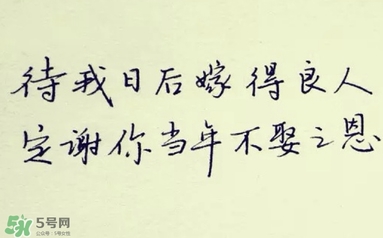 待我日后嫁得良人
定谢你当年不娶之恩
5号网
公众号：5号女性